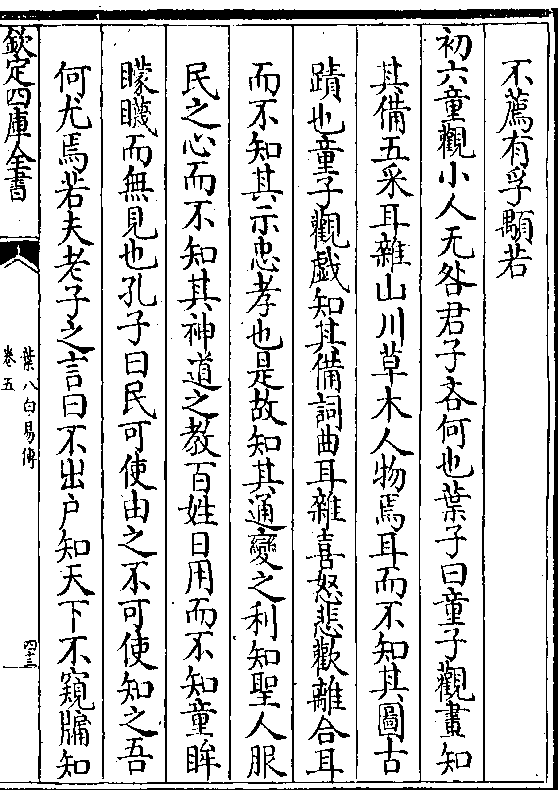 不薦有孚顒若
初六童觀小人无咎君子吝何也葉子曰童子觀畫知
其備五采耳雜山川草木人物焉耳而不知其圖古
蹟也童子觀戲知其備詞曲耳雜喜怒悲歡離合耳
而不知其示忠孝也是故知其通變之利知聖人服
民之心而不知其神道之教百姓日用而不知童眸
矇瞡而無見也孔子曰民可使由之不可使知之吾
何尤焉若夫老子之言曰不出户知天下不窺牖知
欽定四庫全書
葉八白易傳
卷五
四十三